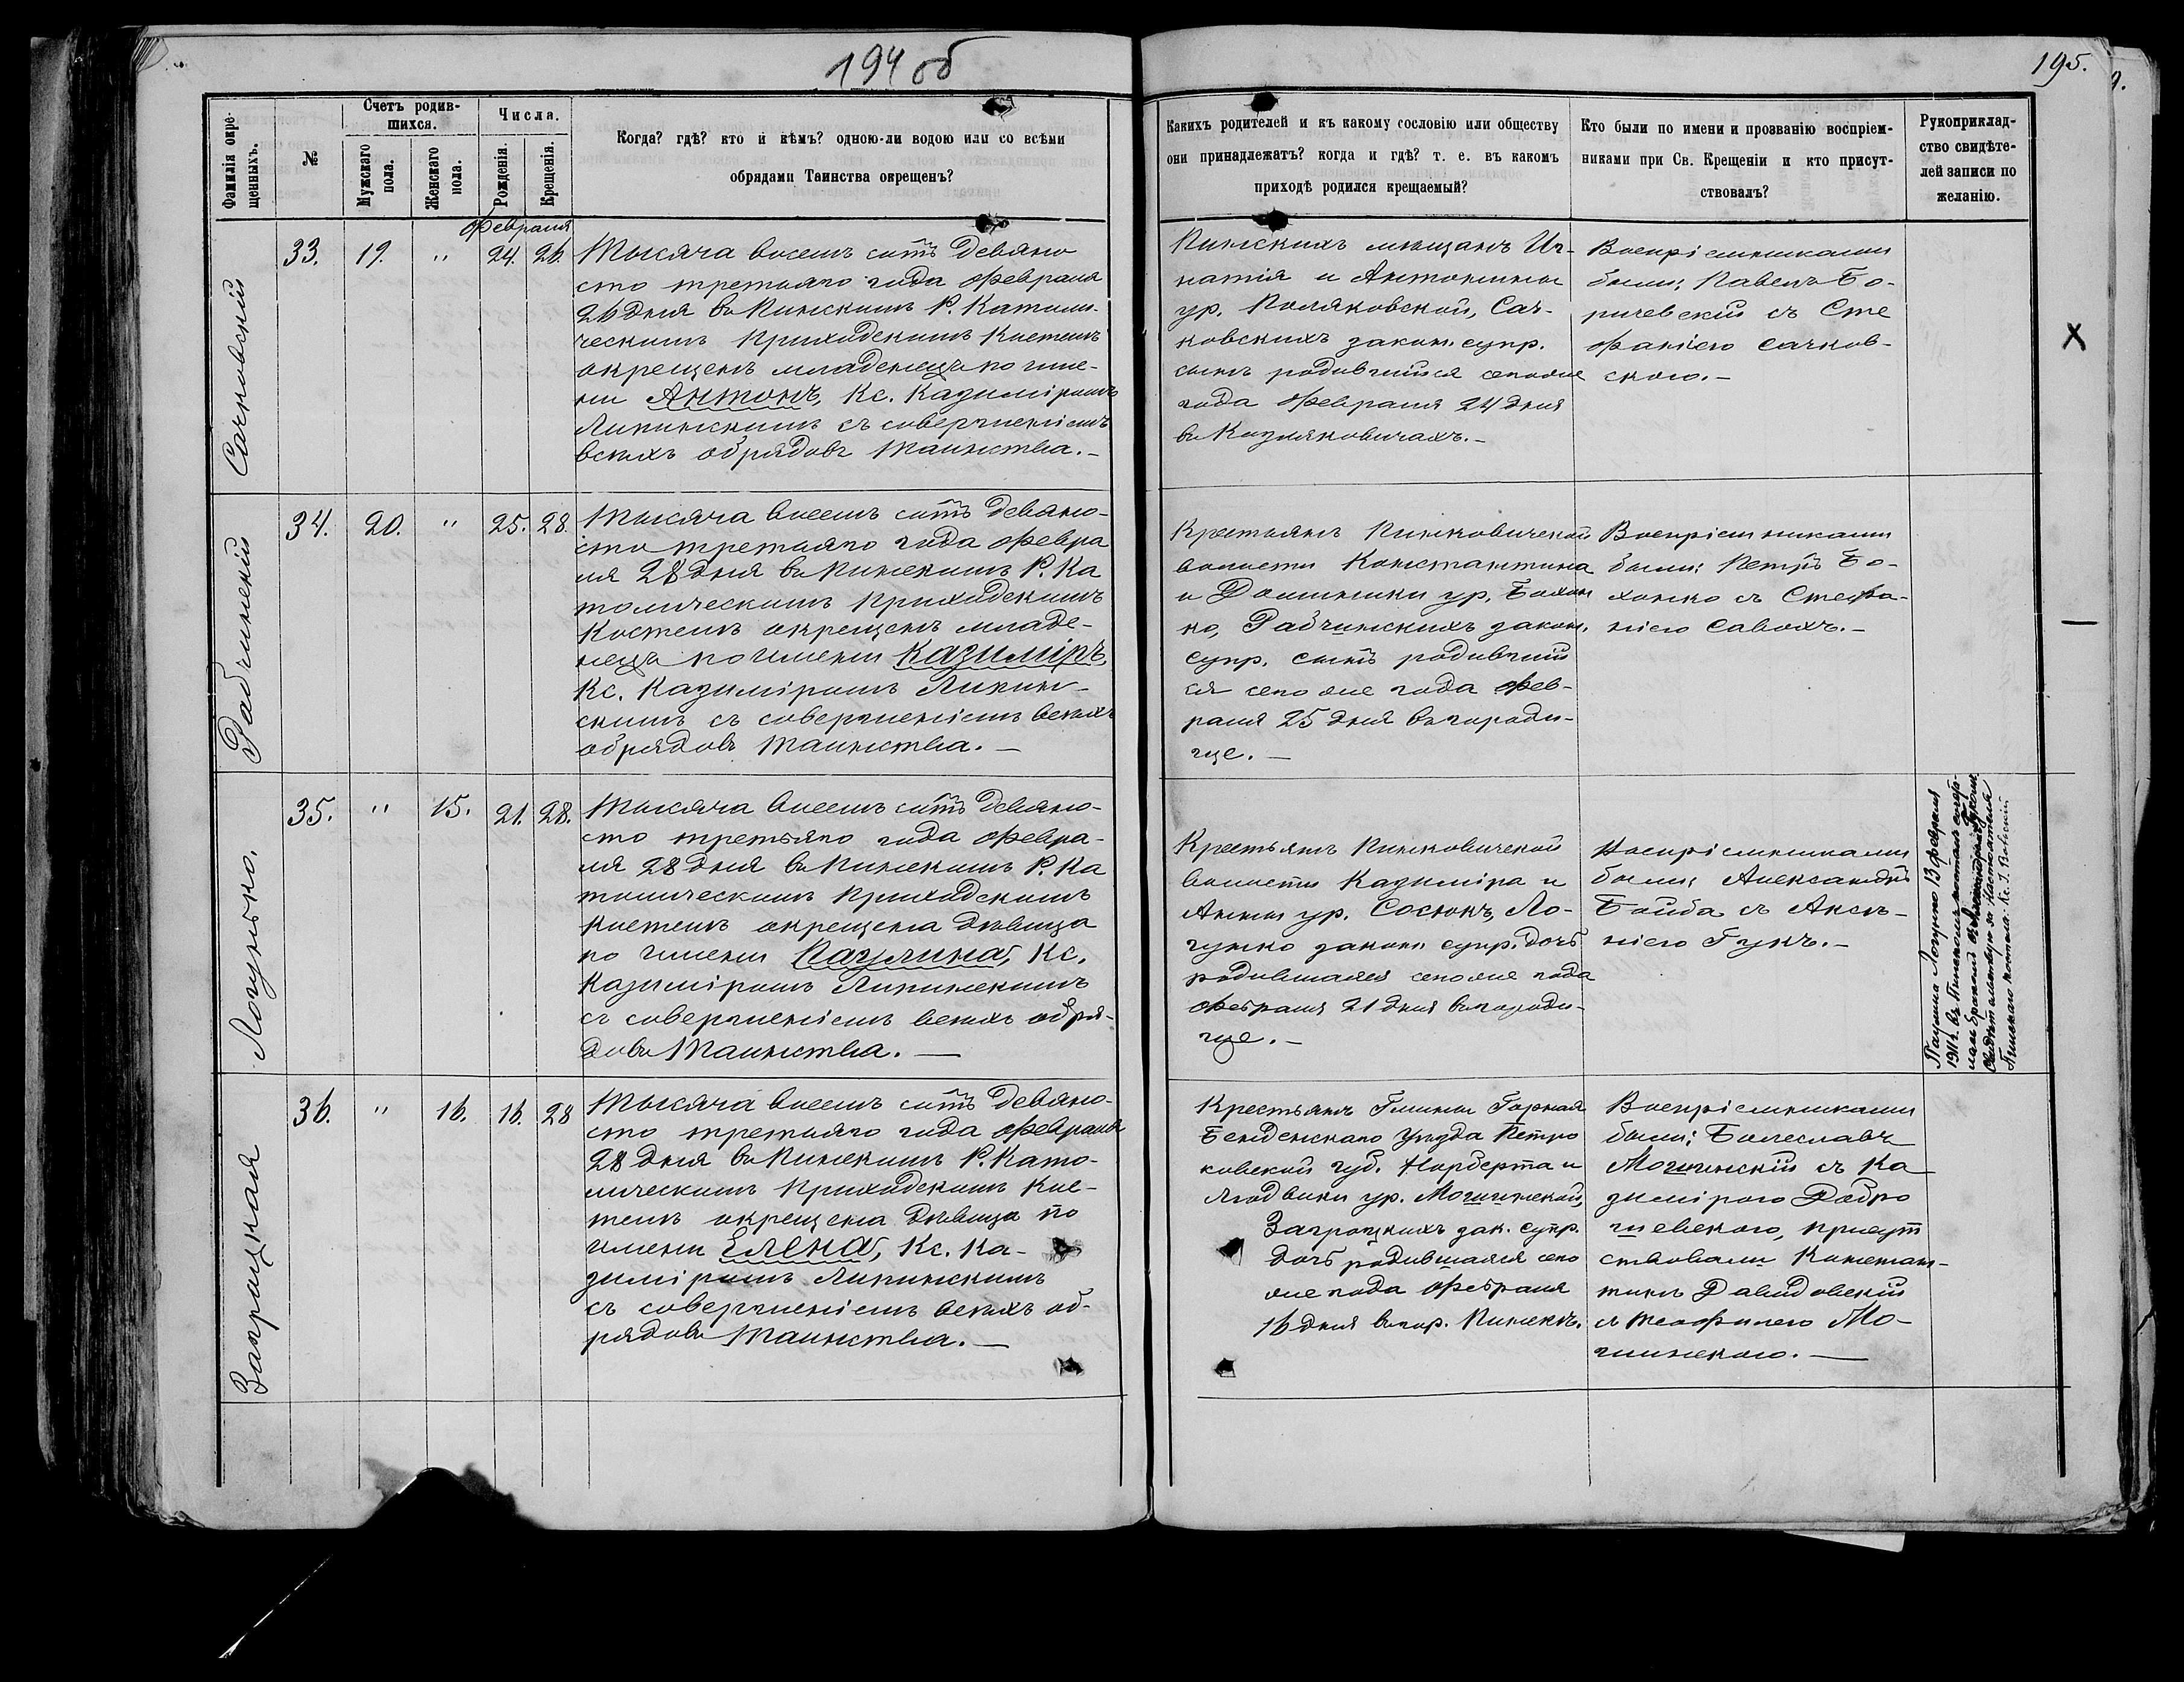 194 об
195.
Фамилія окре-
щенныхъ.
№
Счетъ родив-
шихся.
Мужскаго
пола.
Женскаго
пола.
Числа.
Рожденія.
Крещенія.
Когда? гдѣ? кто и кѣмъ? одною-ли водою или со всѣми
обрядами Таинства окрещенъ?
Какихъ родителей и къ какому сословію или обществу
они принадлежатъ? когда и гдѣ? т. е. въ какомъ
приходѣ родился крещаемый?
Кто были по имени и прозванію воспріем-
никами при Св. Крещеніи и кто присут-
ствовалъ?
Рукоприклад-
ство свидѣте-
лей записи по
желанію.
Февраля
Сачковскій
33. 19. " 24. 26.
Тысяча восемь сотъ девяно
сто третьяго года Февраля
26 дня въ Пинскомъ Р. Католи-
ческомъ Приходскомъ Костелѣ
окрещенъ младенецъ по име-
ни Антонъ, Кс. Казиміромъ
Липинскимъ съ совершеніемъ
всѣхъ обрядовъ Таинства.-
Пинскихъ мѣщанъ Иг-
натія и Антонины
ур. Поляковской, Сач-
ковскихъ закон. супр.
сынъ родившійся сего же
года Февраля 24 дня
въ Козляковичахъ.-
Воспріемниками
были: Павелъ Бо-
ричевскій съ Сте
фаніею Сачков-
скою.-
X
Рабчинскій
34. 20. " 25. 28.
Тысяча восемь сотъ девяно-
сто третьяго года Февра
ля 28 дня въ Пинскомъ Р. Ка
толическомъ Приходскомъ
Костелѣ окрещенъ младе-
нецъ по имени Казиміръ,
Кс. Казиміромъ Липин-
скимъ съ совершеніемъ всѣхъ
обрядовъ Таинства.-
Крестьянъ Пинковичской
волости Константина
и Доминики ур. Бохон
ко, Рабчинскихъ закон.
супр. сынъ родившій
ся сего же года Фев-
раля 25 дня въ Городи-
ще.-
Воспріемниками
были: Петръ Бо-
хонко съ Стефа-
ніею Савохъ.-
—
Логунько.
35. " 15. 21. 28.
Тысяча восемь сотъ девяно-
сто третьяго года Февра-
ля 28 дня въ Пинскомъ Р. Ка
толическомъ Приходскомъ
Костелѣ окрещена дѣвица
по имени Паулина, Кс.
Казиміромъ Липинскимъ
съ совершеніемъ всѣхъ обря-
довъ Таинства.—
Крестьянъ Пинковичской
волости Казиміра и
Анны ур. Соснокъ, Ло-
гунко закон. супр. дочь
родившаяся сего же года
Февраля 21 дня въ Городи-
ще.-
Воспріемниками
были: Александръ
Бойба съ Аксѣ-
ніею Гукъ.-
Паулина Логунко 13 февраля
1911 г. въ Пинскомъ костелѣ
Пинскаго костела: Кс. І.
Загроцкая
36. " 16. 16. 28
Тысяча восемь сотъ девяно-
сто третьяго года Февраля
28 дня въ Пинскомъ Р. Като-
лическомъ Приходскомъ Кос-
телѣ окрещена дѣвица по
имени Елена, Кс. Ка-
зиміромъ Липинскимъ
съ совершеніемъ всѣхъ об-
рядовъ Таинства.—
Крестьянъ Гмины Горная
Бенденскаго Уѣзда Петро
ковской губ. Норберта и
Людвики ур. Могилинской,
Загроцкихъ зак. супр.
дочь родившаяся сего
же года Февраля
16 дня въ гор. Пинскѣ.
Воспріемниками
были: Болеславъ
Могилинскій съ Ка
зимірою Добро
шевскою, присут
ствовали Констан-
тинъ Давидовскій
съ Теофилею Мо-
гилинскою.—